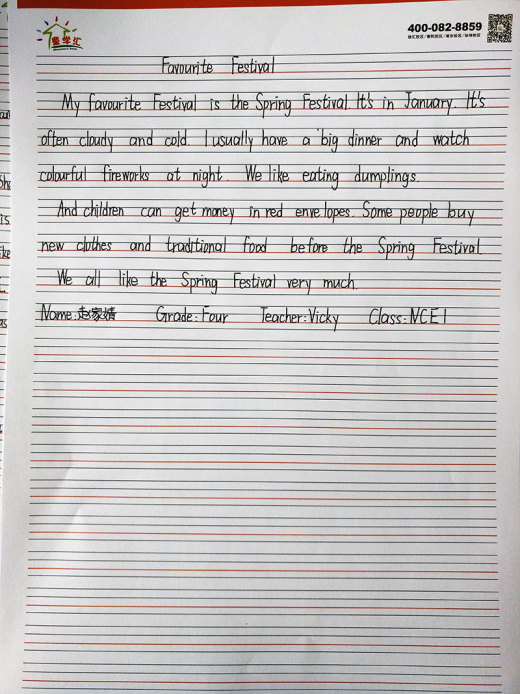 爱学汇
400-082-8859
Favourite Festival
My favourite Festival is the Spring Festival. It's in January. It's
often cloudy and cold. I usually have a big dinner and watch
colourful fireworks at night. We like eating dumplings.
And children can get money in red envelopes. Some people buy
new clothes and traditional food before the Spring Festival.
We all like the Spring Festival very much.
Name: 赵家婧 Grade: Four Teacher: Vicky Class: NCE1